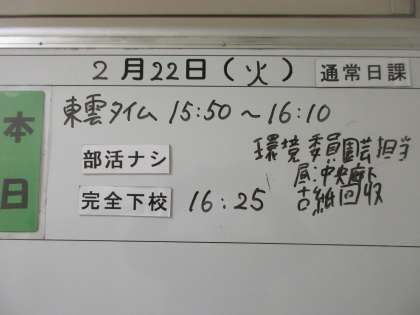 2月22日(火) 通常日課
本日
東雲タイム 15:50～16:10
部活ナシ
環境委員園芸担当
昼:中央廊下
古紙回収
完全下校 16:25